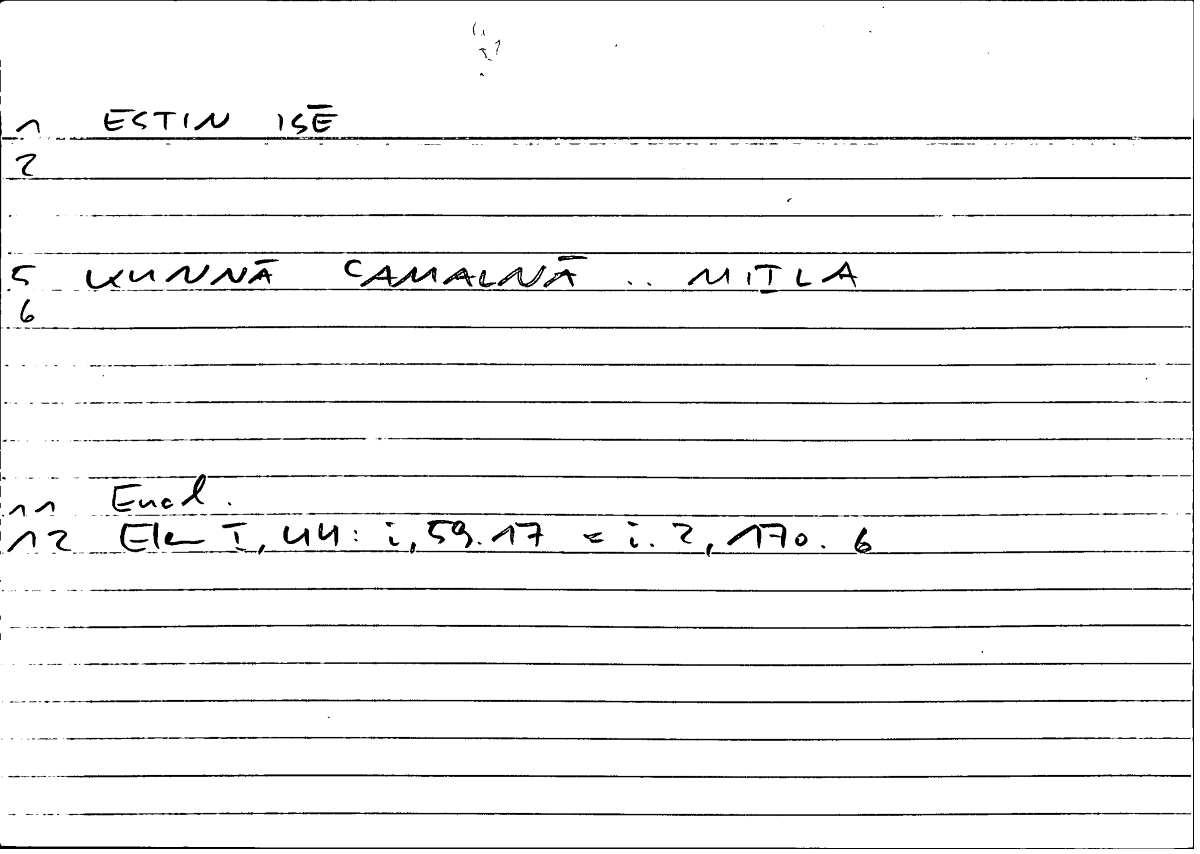 1 ESTIN ISĒ
2
5 KUNNĀ CAMALNĀ .. MIṮLA
6
11 Eucl.
12 Elem I, 44: i, 59.17 = i. 2, 170. 6